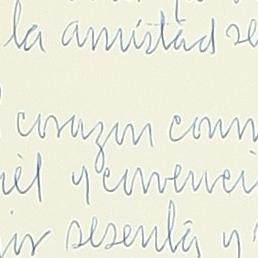 la amistad se
corazon conm
y convenci
sesenta y